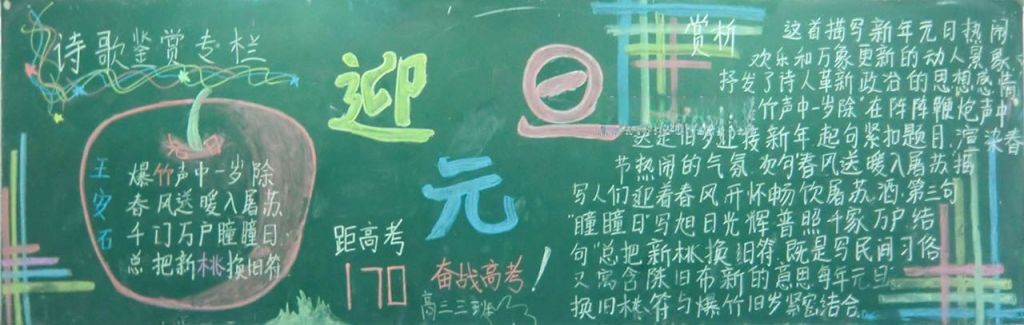 诗歌鉴赏专栏
王安石
爆竹声中一岁除
春风送暖入屠苏
千门万户曈曈日
总把新桃换旧符
迎
元
旦
距高考
170
奋战高考!
高三三班
赏析
这首描写新年元日热闹
欢乐和万象更新的动人景象
抒发了诗人革新政治的思想感情
竹声中一岁除"在阵阵鞭炮声中
送走旧岁迎接新年.起句紧扣题目,渲染春
节热闹的气氛.次句春风送暖入屠苏描
写人们迎着春风开怀畅饮屠苏酒.第三句
"曈曈日"写旭日光辉普照千家万户结
句"总把新桃换旧符.既是写民间习俗
又寓含除旧布新的意思每年元旦
换旧桃符与爆竹旧岁紧密结合.